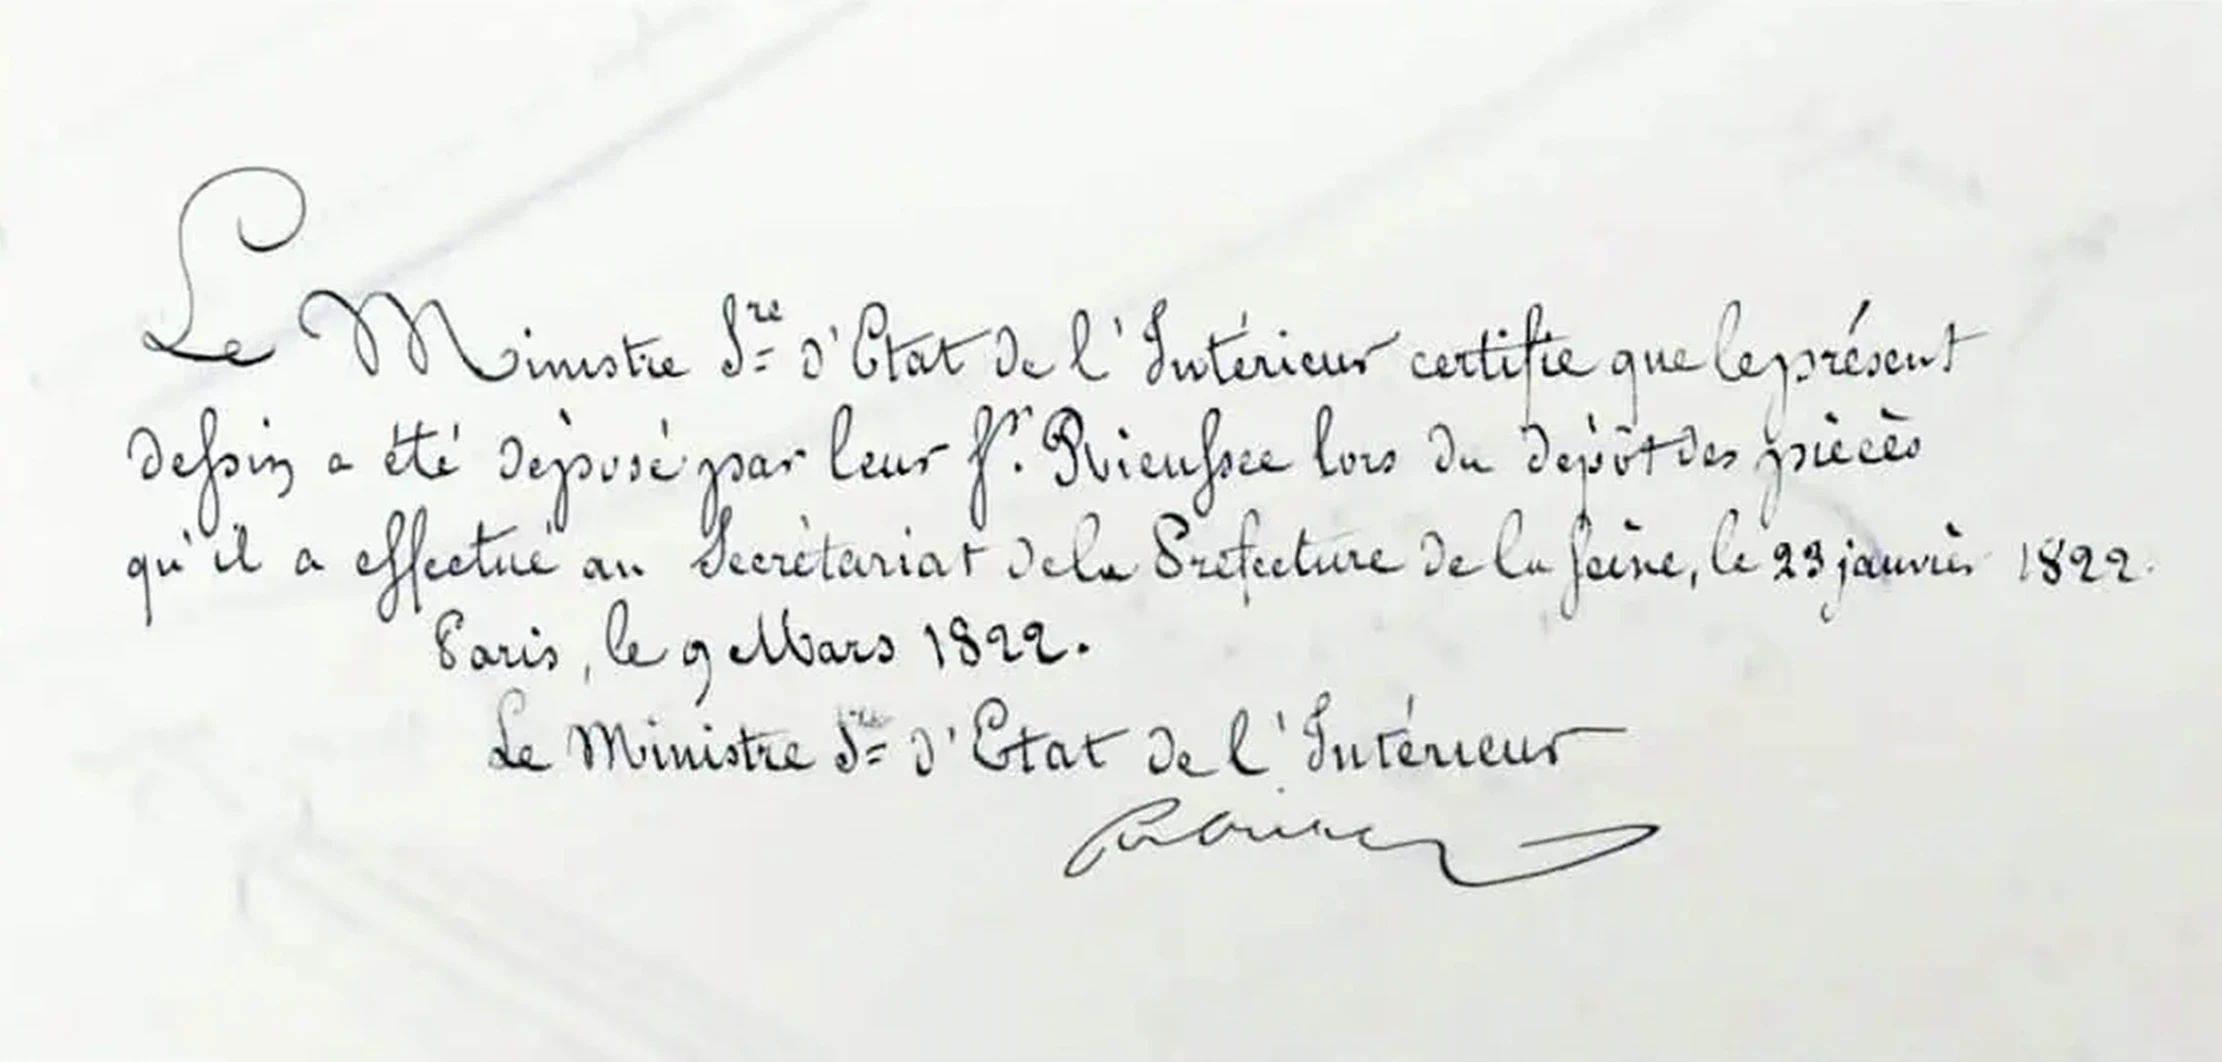 Le Ministre Sre d'Etat de l'Intérieur certifie que le présent
dessin a été déposé par leur Sr. Rieussec lors du dépôt des pièces
qu'il a effectué au Secrétariat de la Préfecture de la Seine, le 23 janvier 1822.
Paris, le 9 Mars 1822.
Le Ministre Sre d'Etat de l'Intérieur